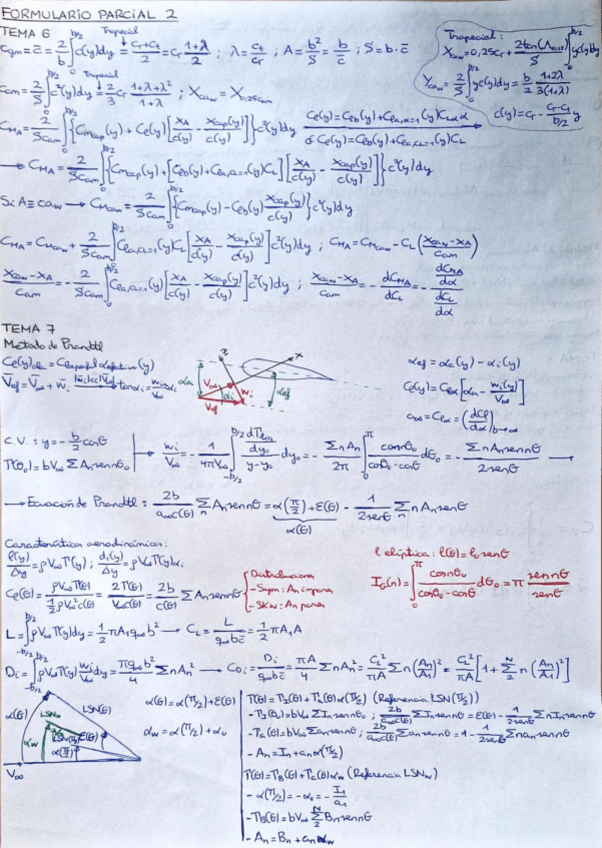 FORMULARIO PARCIAL 2
TEMA 6
Trapecial
Cgm = c̄ = 2/b ∫₀^{b/2} c(y)dy = (cr+ct)/2 = cr (1+λ)/2 ; λ = ct/cr ; A = b²/S = b/c̄ ; S = b·c̄
Trapecial:
Xcaw = 0,25cr + 2tan(Λ)/S ∫₀^{b/2} yc(y)dy
Ycaw = 2/S ∫₀^{b/2} yc(y)dy = b/2 (1+2λ)/(3(1+λ))
c(y) = cr - (cr-ct)/(b/2) y
Trapecial
cam = 2/S ∫₀^{b/2} c²(y)dy = 2/3 cr (1+λ+λ²)/(1+λ) ; Xcaw = X0,25cam
CMA = 2/(Scam) ∫₀^{b/2} {Cmcap(y) + Cl(y)[xA/c(y) - xcap(y)/c(y)]}c²(y)dy
Cl(y) = Clb(y) + Cla,α=1(y)CLα α
ó Cl(y) = Clb(y) + Cla,CL=1(y)CL
→ CMA = 2/(Scam) ∫₀^{b/2} {Cmcap(y) + [Clb(y) + Cla,CL=1(y)CL][xA/c(y) - xcap(y)/c(y)]}c²(y)dy
Si A ≡ caw → CMcaw = 2/(Scam) ∫₀^{b/2} {Cmcap(y) - Clb(y) xcap(y)/c(y)}c²(y)dy
CMA = CMcaw + 2/(Scam) ∫₀^{b/2} Cla,CL=1(y)CL[xA/c(y) - xcap(y)/c(y)]c²(y)dy ; CMA = CMcaw - CL((xcaw-xA)/cam)
(xcaw-xA)/cam = -2/(Scam) ∫₀^{b/2} Cla,CL=1(y)[xA/c(y) - xcap(y)/c(y)]c²(y)dy ; (xcaw-xA)/cam = -dCMA/dCL = -(dCMA/dα)/(dCL/dα)
TEMA 7
Método de Prandtl
V̄ef = V̄∞ + w̄i |w̄i|<<|V̄∞| → tanαi = wi/V∞ ≈ αi
z x αa V∞ αi wi Vef αef
αef = αa(y) - αi(y)
Cl(y) = Clα[αa - wi(y)/V∞]
a∞ = Clα = (dCl/dα)b→∞
C.V.: y = -b/2 cosθ
Γ(θ₀) = bV∞ ΣAn sennθ₀
→ wi/V∞ = -1/(4πV∞) ∫_{-b/2}^{b/2} (dΓ/dy₀)/(y-y₀) dy₀ = -ΣnAn/2π ∫₀^π cosnθ₀/(cosθ₀-cosθ) dθ₀ = -ΣnAn sennθ/(2senθ) →
→ Ecuación de Prandtl: 2b/(a∞c(θ)) Σn An sennθ = α(π/2) + ε(θ) - 1/(2senθ) Σn nAn sennθ
α(θ)
Características aerodinámicas:
l(y)/Δy = ρV∞Γ(y) ; di(y)/Δy = ρV∞Γ(y)αi
l elíptica: l(θ) = l₀ senθ
Cl(θ) = ρV∞Γ(θ)/(½ρV∞²c(θ)) = 2Γ(θ)/(V∞c(θ)) = 2b/c(θ) ΣAn sennθ
Distribuciones
- Sym: An impares
- Skw: An pares
IG(n) = ∫₀^π cosnθ₀/(cosθ₀-cosθ) dθ₀ = π sennθ/senθ
L = ∫_{-b/2}^{b/2} ρV∞Γ(y)dy = ½πA₁q∞b² → CL = L/(q∞bc̄) = ½πA₁A
Di = ∫_{-b/2}^{b/2} ρV∞Γ(y) wi/V∞ dy = πq∞b²/4 ΣnAn² → CDi = Di/(q∞bc̄) = πA/4 ΣnAn² = CL²/(πA) Σn(An/A₁)² = CL²/(πA)[1 + Σ₂^N n(An/A₁)²]
α(θ) LSNw LSN(θ) αw LSN(π/2) ε(θ) α(π/2) V∞
α(θ) = α(π/2) + ε(θ)
αw = α(π/2) + α₀
Γ(θ) = ΓI(θ) + Γa(θ)α(π/2) (Referencia LSN(π/2))
- ΓI(θ₀) = bV∞ ΣIn sennθ₀ ; 2b/(a∞c(θ)) ΣIn sennθ = ε(θ) - 1/(2senθ) ΣnIn sennθ
- Γa(θ₀) = bV∞ Σan sennθ₀ ; 2b/(a∞c(θ)) Σan sennθ = 1 - 1/(2senθ) Σnan sennθ
- An = In + anα(π/2)
Γ(θ) = ΓB(θ) + Γa(θ)αw (Referencia LSNw)
- α(π/2) = -α₀ = -I₁/a₁
- ΓB(θ) = bV∞ Σ₂^N Bn sennθ
- An = Bn + anαw